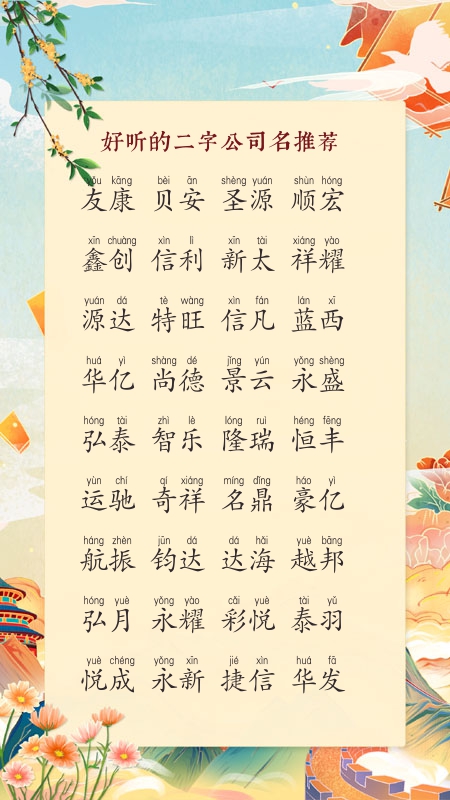 好听的二字公司名推荐
yǒu kāng bèi ān shèng yuán shùn hóng
友康 贝安 圣源 顺宏
xīn chuàng xìn lì xīn tài xiáng yào
鑫创 信利 新太 祥耀
yuán dá tè wàng xìn fán lán xī
源达 特旺 信凡 蓝西
huá yì shàng dé jǐng yún yǒng shèng
华亿 尚德 景云 永盛
hóng tài zhì lè lóng ruì héng fēng
弘泰 智乐 隆瑞 恒丰
yùn chí qí xiáng míng dǐng háo yì
运驰 奇祥 名鼎 豪亿
háng zhèn jūn dá dá hǎi yuè bāng
航振 钧达 达海 越邦
hóng yuè yǒng yào cǎi yuè tài yǔ
弘月 永耀 彩悦 泰羽
yuè chéng yǒng xīn jié xìn huá fā
悦成 永新 捷信 华发